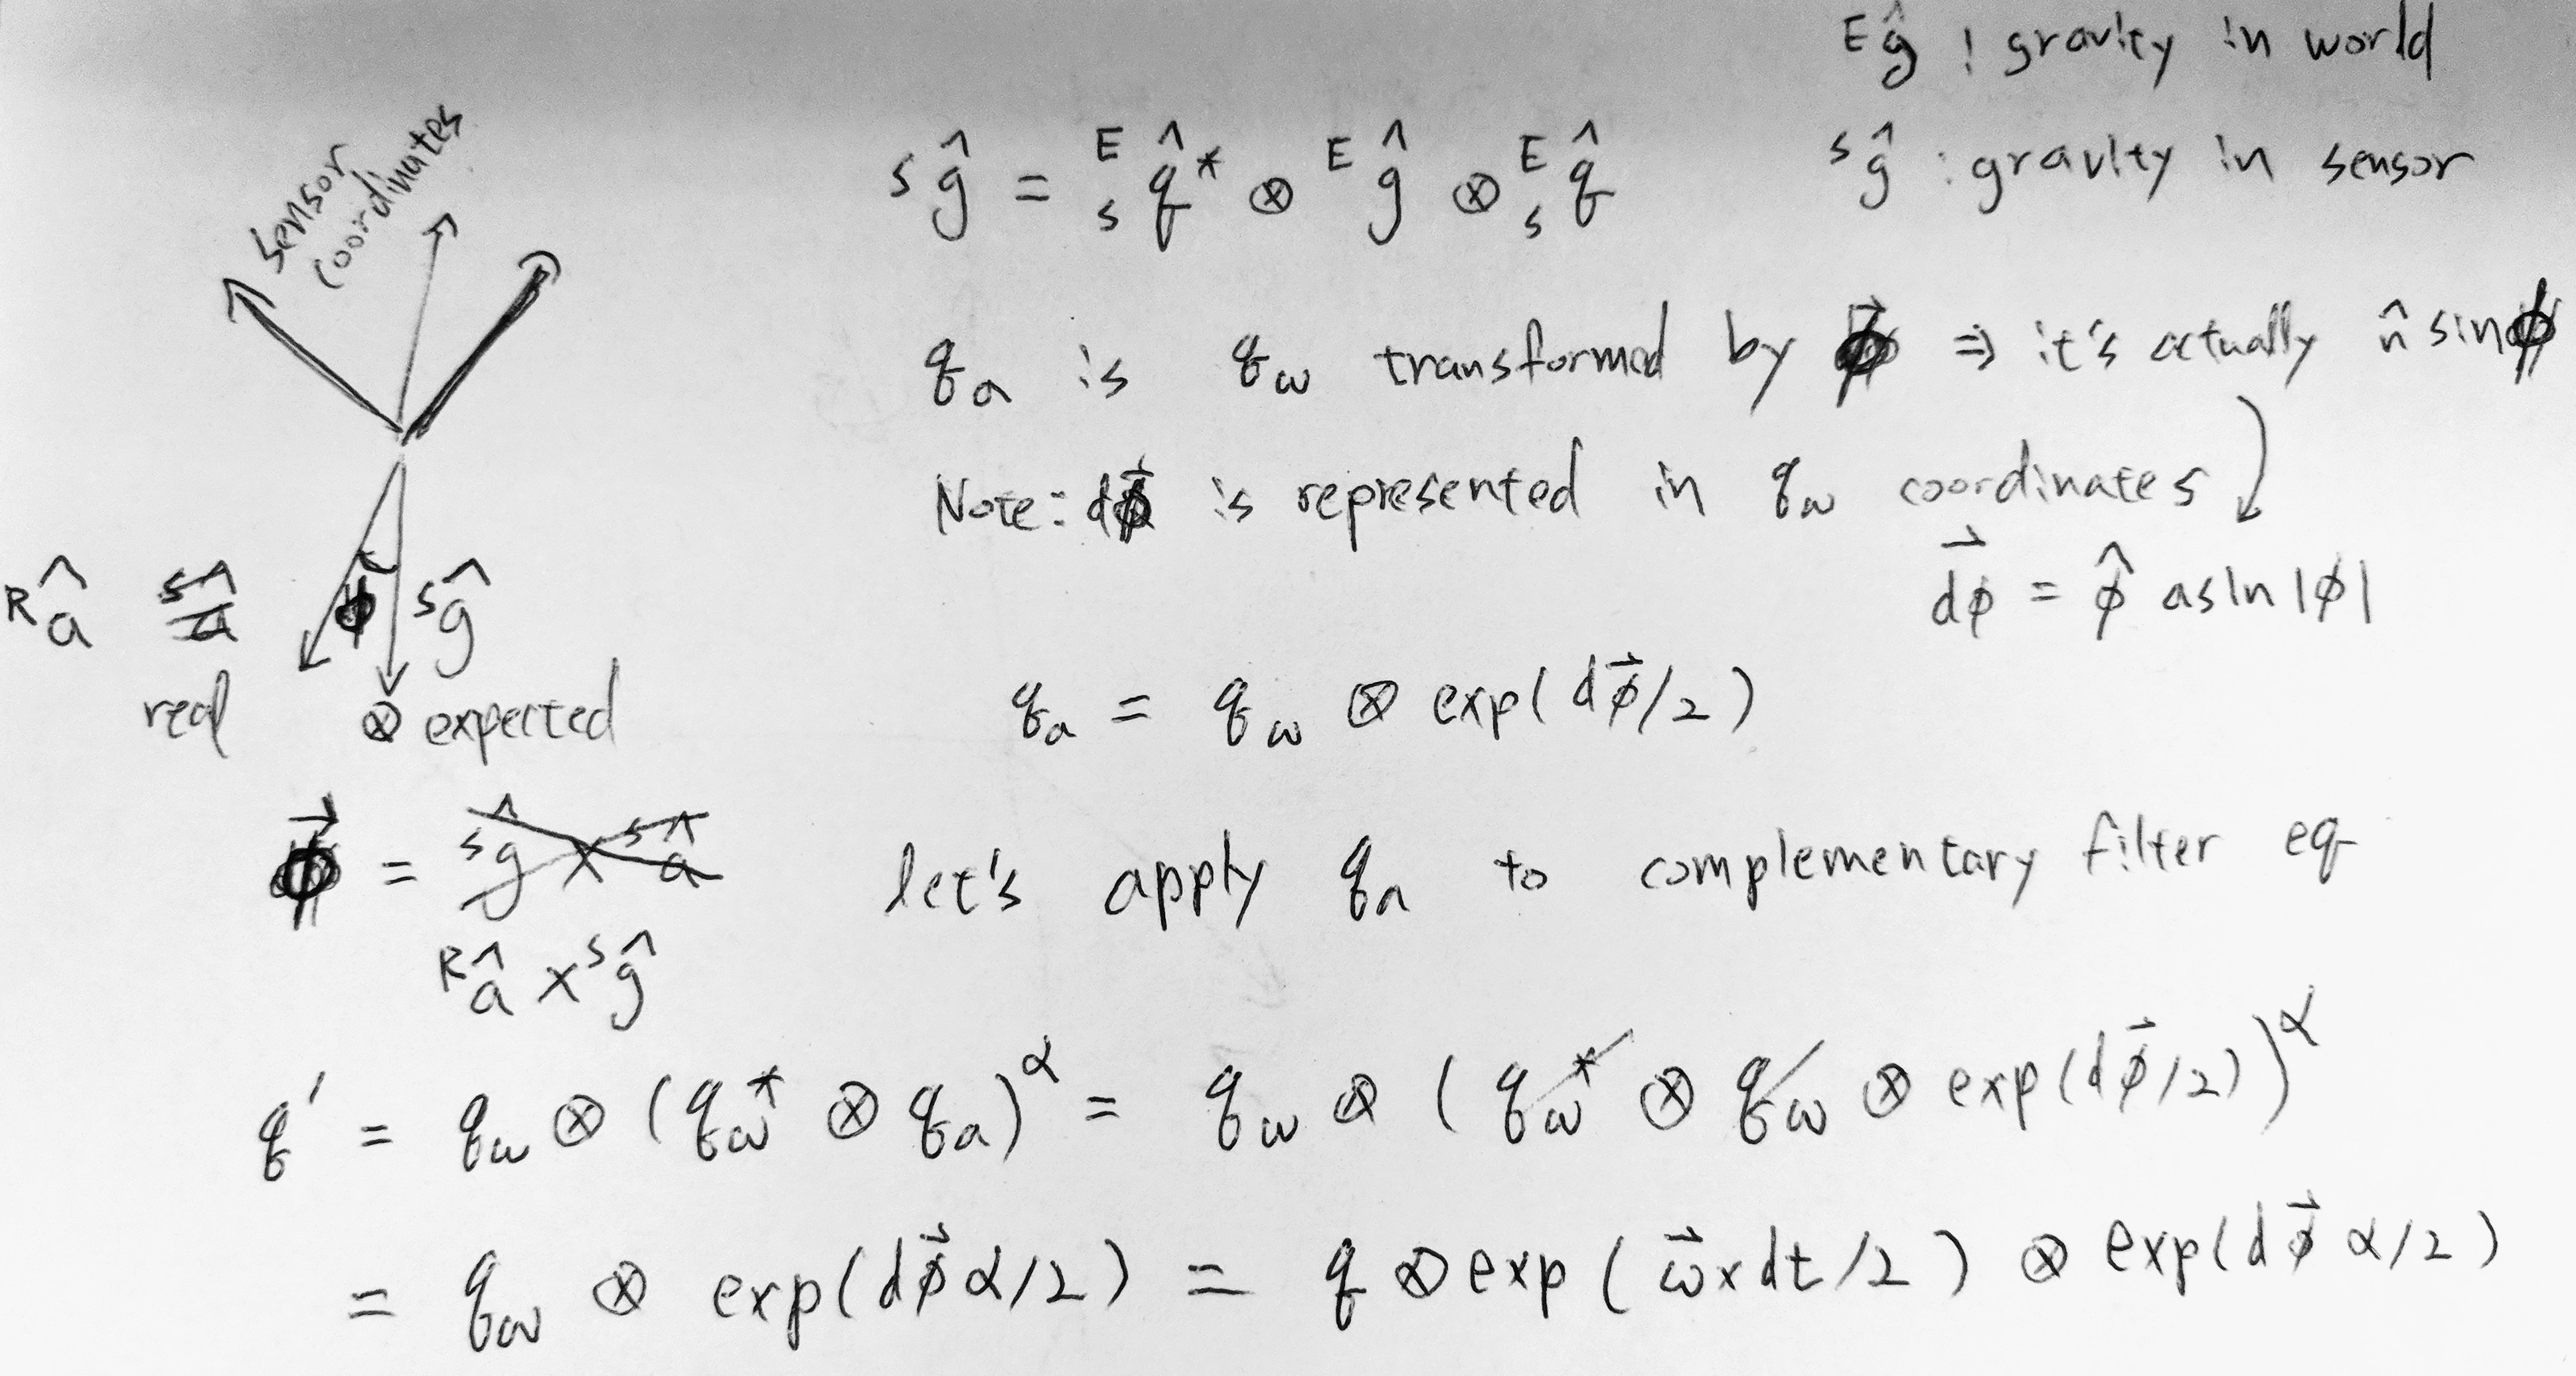 ᴱĝ : gravity in world
ˢĝ : gravity in sensor
sensor
coordinates
ˢĝ = ᴱₛq̂* ⊗ ᴱĝ ⊗ ᴱₛq̂
qₐ is q_ω transformed by ϕ⃗ ⇒ it's actually n̂ sinϕ
Note: dϕ⃗ is represented in q_ω coordinates
dϕ⃗ = ϕ̂ asin|ϕ|
ᴿâ ˢâ ϕ ˢĝ
real ⊗ expected
qₐ = q_ω ⊗ exp(dϕ⃗/2)
ϕ⃗ = ˢĝ × ˢâ
ᴿâ × ˢĝ
let's apply qₐ to complementary filter eq
q' = q_ω ⊗ (q_ω* ⊗ qₐ)^α = q_ω ⊗ (q_ω* ⊗ q_ω ⊗ exp(dϕ⃗/2))^α
= q_ω ⊗ exp(dϕ⃗α/2) = q ⊗ exp(ω⃗×dt/2) ⊗ exp(dϕ⃗α/2)